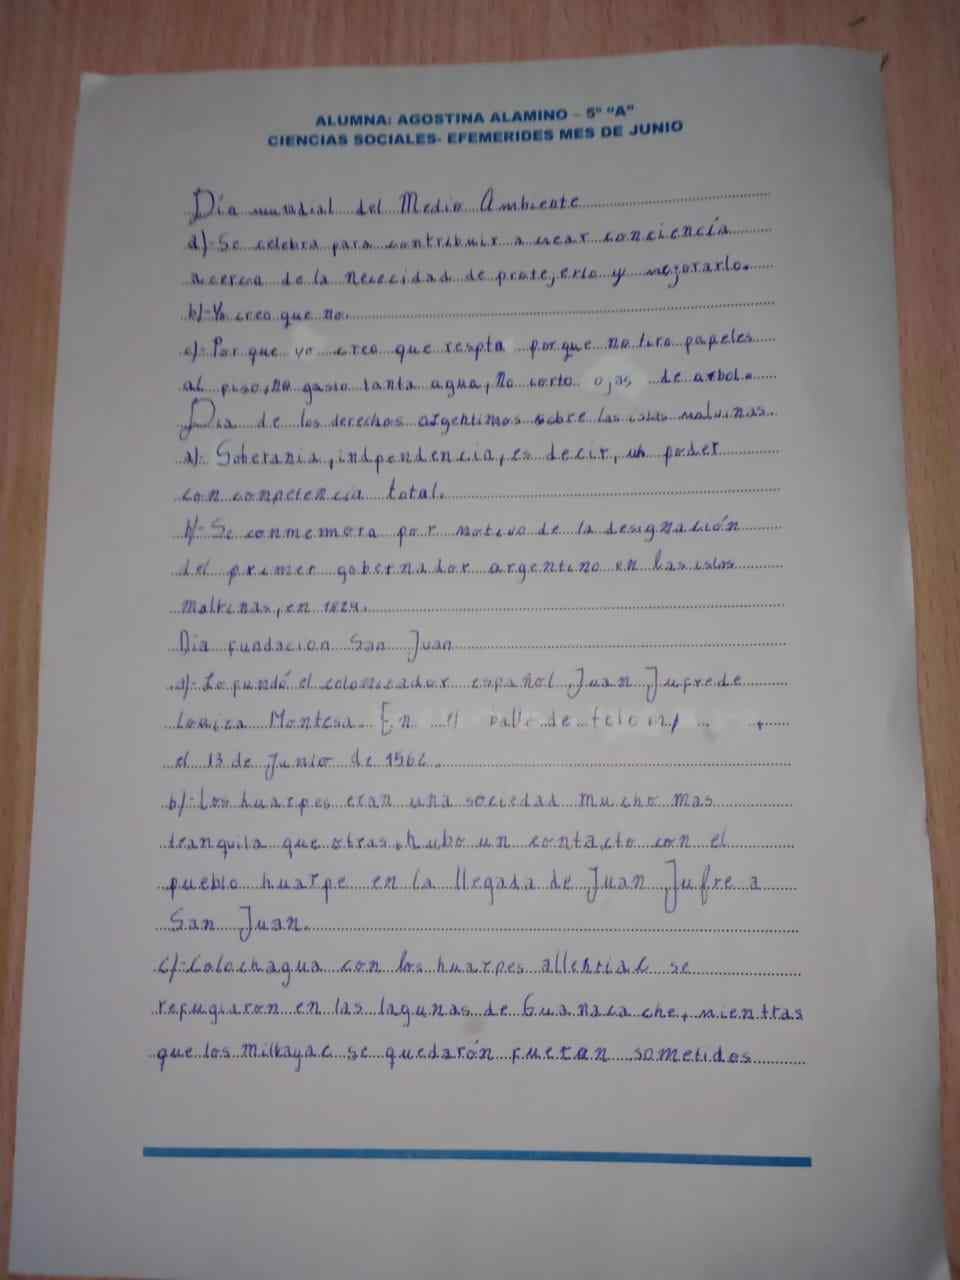 ALUMNA: AGOSTINA ALAMINO - 5º "A"
CIENCIAS SOCIALES- EFEMERIDES MES DE JUNIO
Día mundial del Medio Ambiente
a)-Se celebra para contribuir a crear conciencía
acerca de la nececidad de protejerlo y mejorarlo.
b)-Yo creo que no.
c)-Por que yo creo que respta porque no tiro papeles
al piso, no gasto tanta agua, no corto ojas de arbol.
Dia de los derechos argentinos sobre las islas malvinas.
a)-Soberania, indpendencia, es decir, un poder
con competencia total.
b)-Se conmemora por motivo de la designación
del primer gobernador argentino en las islas
Malvinas, en 1829.
Dia fundacion San Juan
a)-Lo fundó el colonizador español Juan Jufre de
Loaiza Montesa. En el valle de
el 13 de Junio de 1562.
b)-Los huarpes eran una sociedad mucho mas
tranquila que otras, hubo un contacto con el
pueblo huarpe en la llegada de Juan Jufre a
San Juan.
c)-Colochagua con los huarpes allentiac se
refugiaron en las lagunas de Guanacache, mientras
que los milkayac se quedarón fueran sometidos